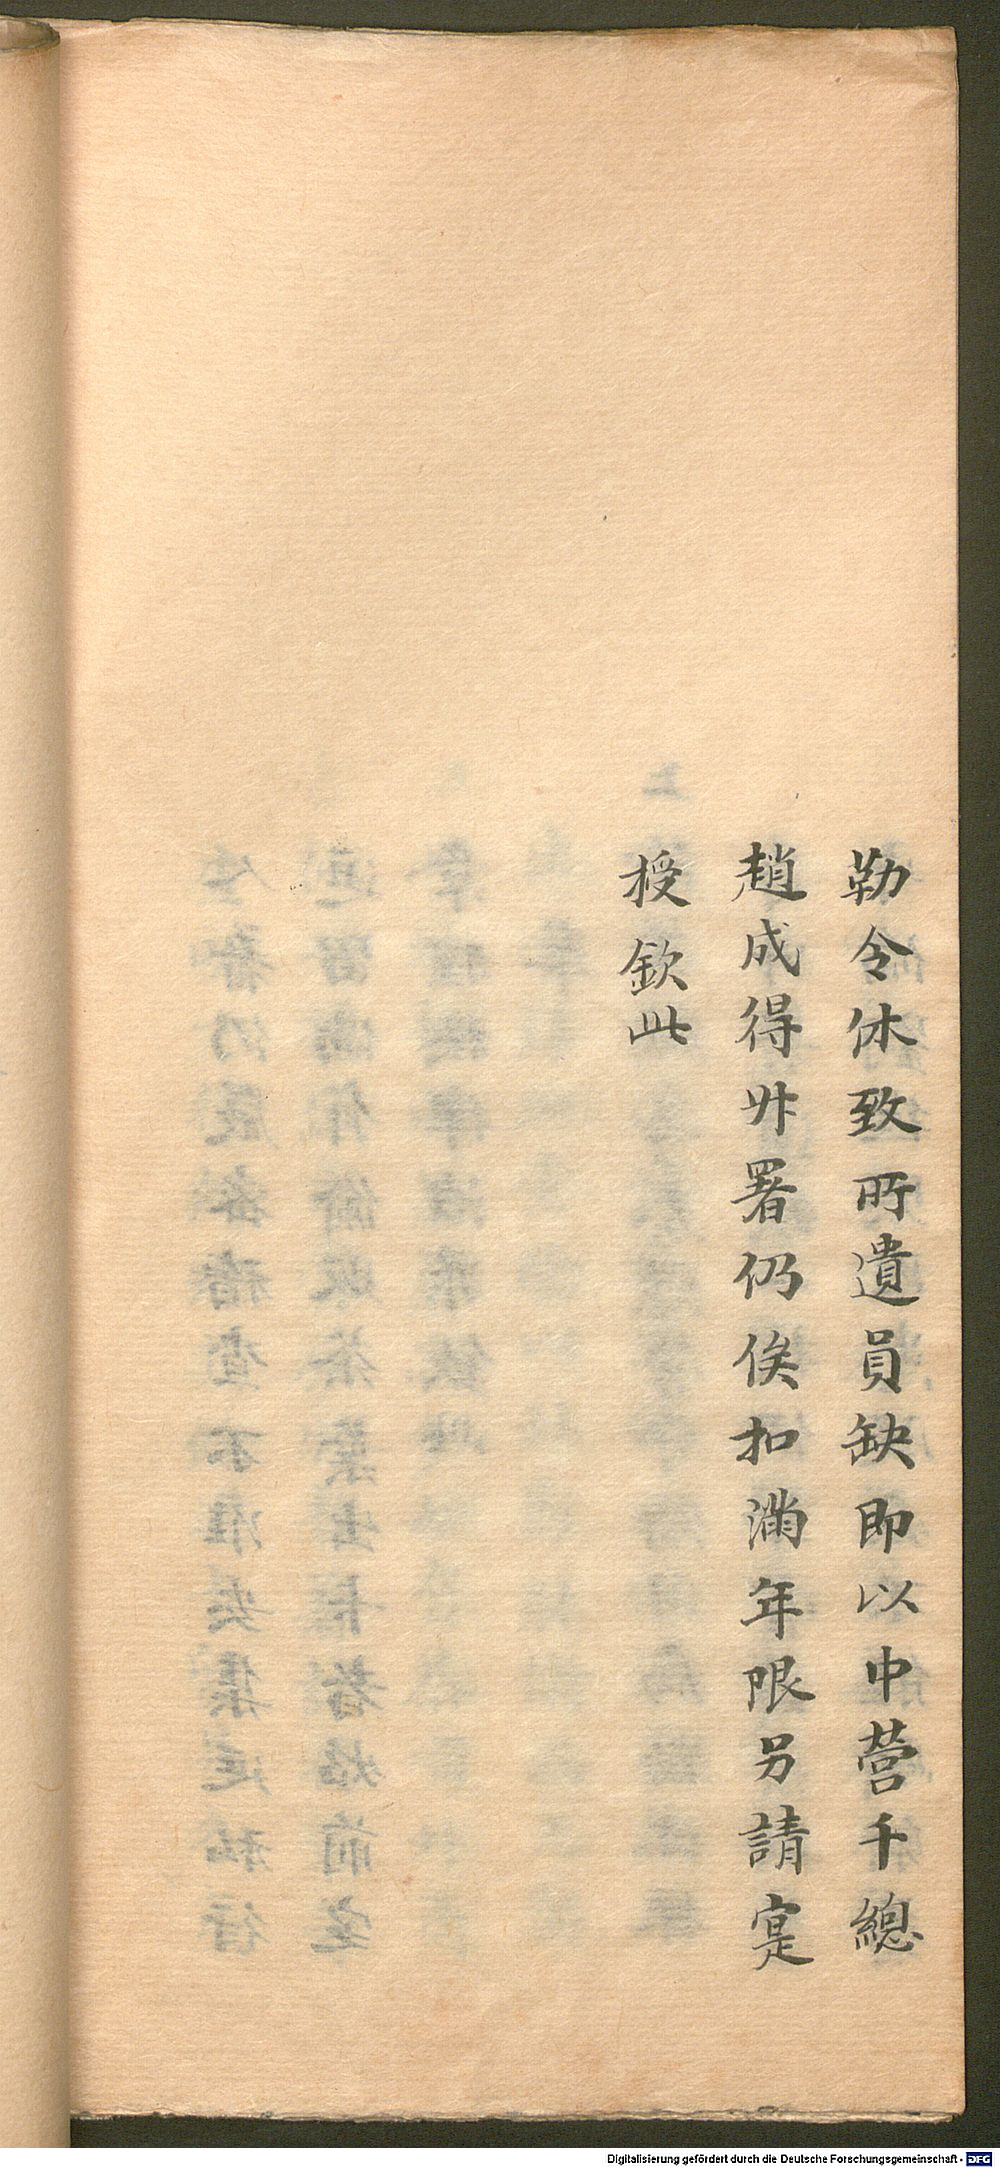 勒令休致所遺員缺即以中營千總
趙成得升署仍俟扣滿年限另請寔
授欽此
Digitalisierung gefördert durch die Deutsche Forschungsgemeinschaft - DFG